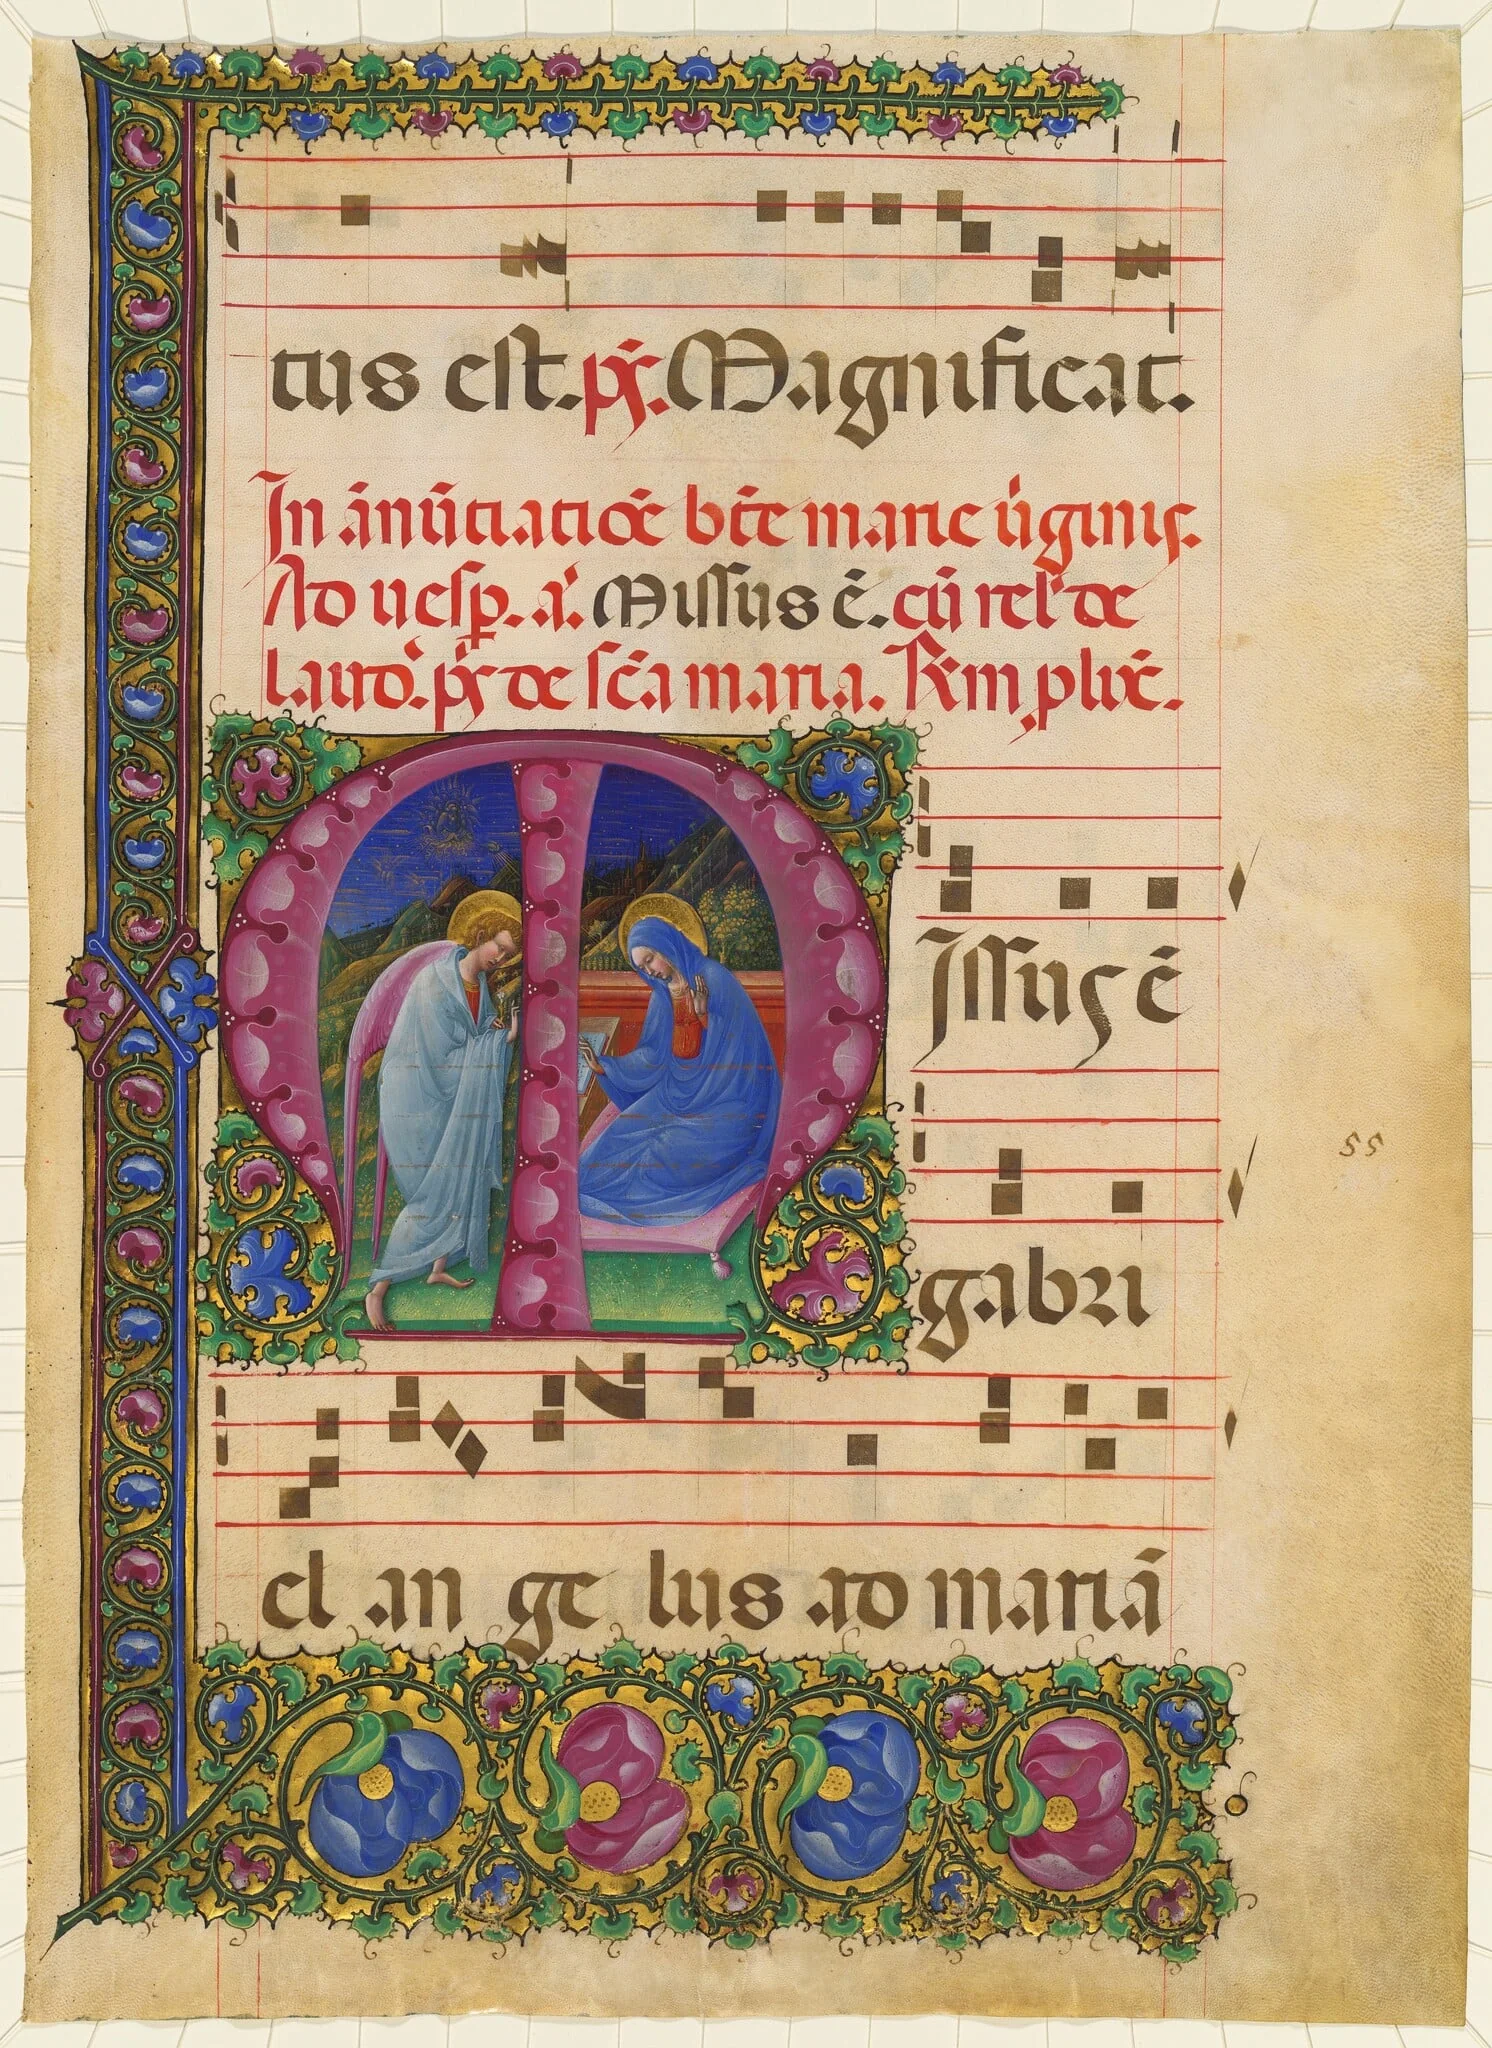 tus est. p̄s. Magnificat.
In ānūtiatiōe bt̄e marie ūginis.
Ad uesp̱. a͛. Missus ē. cū rel' de
laud'. p̄s de sc̄a maria. R̄m, plix̄.
Missus ē
55
gabri
el an ge lus ad mariā